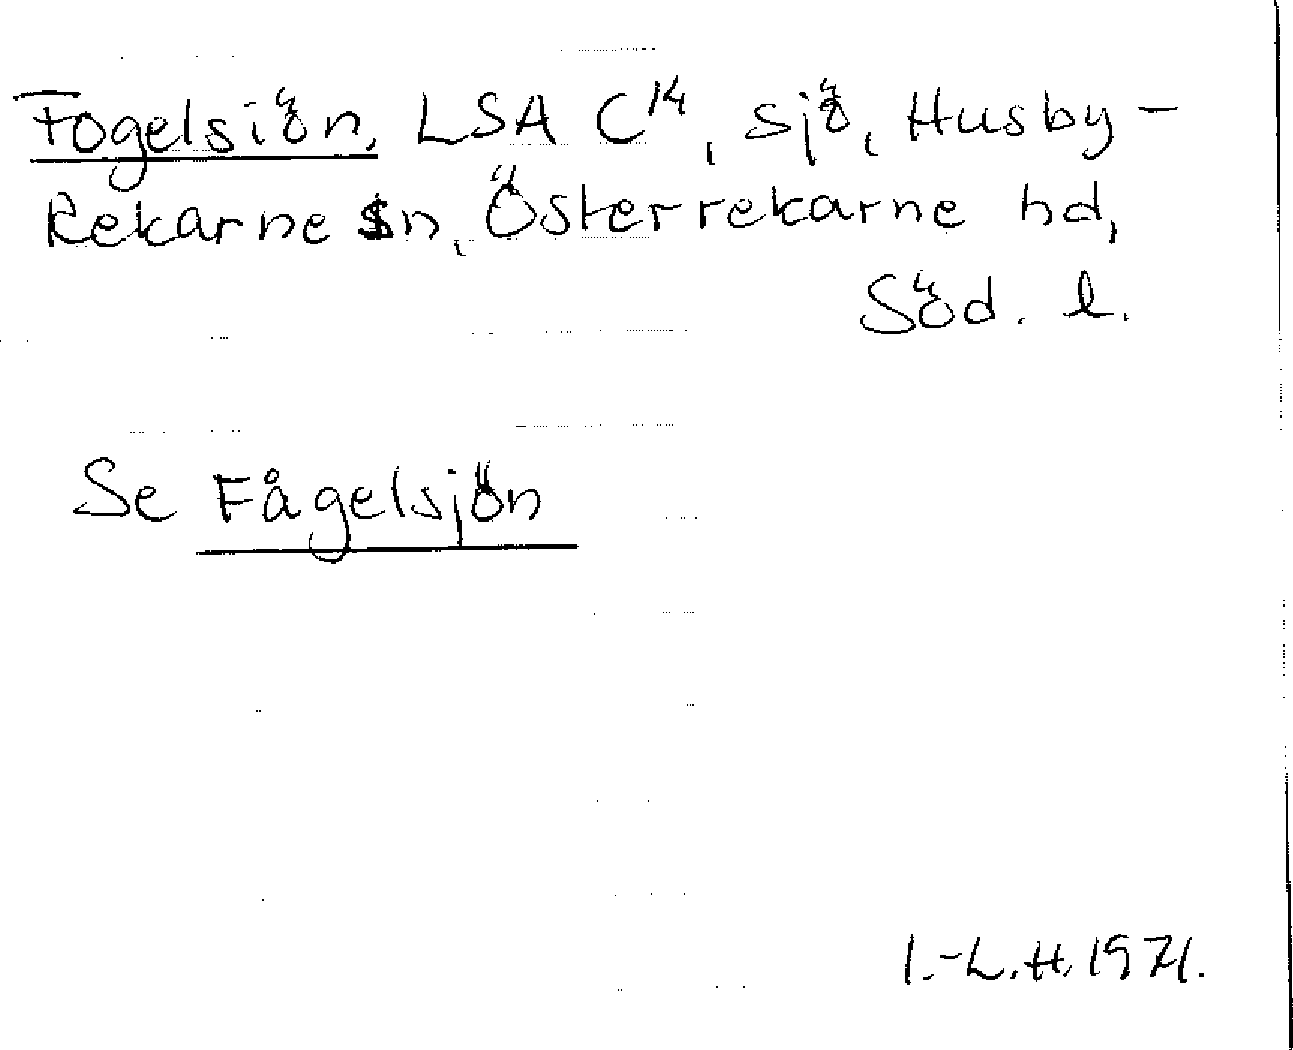 Fogelsiön, LSA C14, sjö, Husby-
Rekarne sn, Österrekarne hd,
Söd. l.
Se Fågelsjön
I.-L.H. 1971.